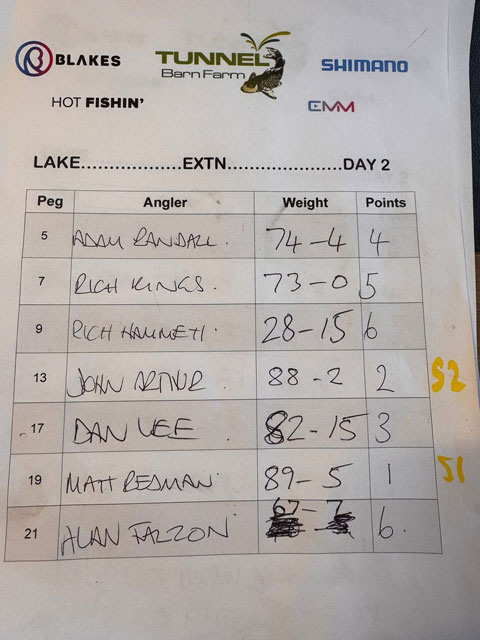 BLAKES
TUNNEL
Barn Farm
SHIMANO
HOT FISHIN'
EMM
LAKE..................EXTN.....................DAY 2
Peg Angler Weight Points
5 ADAM RANDALL. 74-4 4
7 RICH KINGS. 73-0 5
9 RICH HAMMETT. 28-15 6
13 JOHN ARTHUR. 88-2 2 S2
17 DAN LEE. 82-15 3
19 MATT REDMAN. 89-5 1 S1
21 ALAN FALZON 67-7 6.